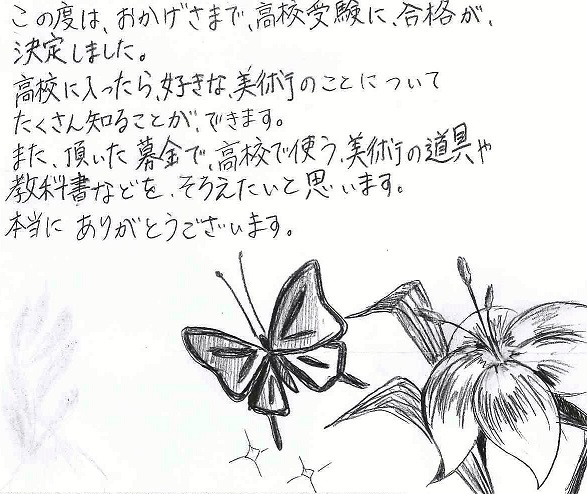 この度は、おかげさまで、高校受験に、合格が、
決定しました。
高校に入ったら、好きな、美術のことについて
たくさん知ることが、できます。
また、頂いた募金で、高校で使う、美術の道具や
教科書などを、そろえたいと思います。
本当にありがとうございます。